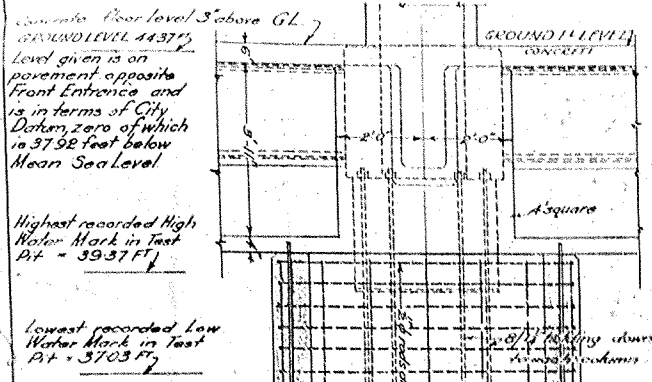 Concrete floor level 3" above GL
GROUND LEVEL 44.37 FT
Level given is on
pavement opposite
Front Entrance and
is in terms of City
Datum, zero of which
is 37.92 feet below
Mean Sea Level
Highest recorded High
Water Mark in Test
Pit = 39.37 FT
Lowest recorded Low
Water Mark in Test
Pit = 37.03 FT
GROUND Fl LEVEL
CONCRETE
2'0"
2'0"
4' square
holding down
column